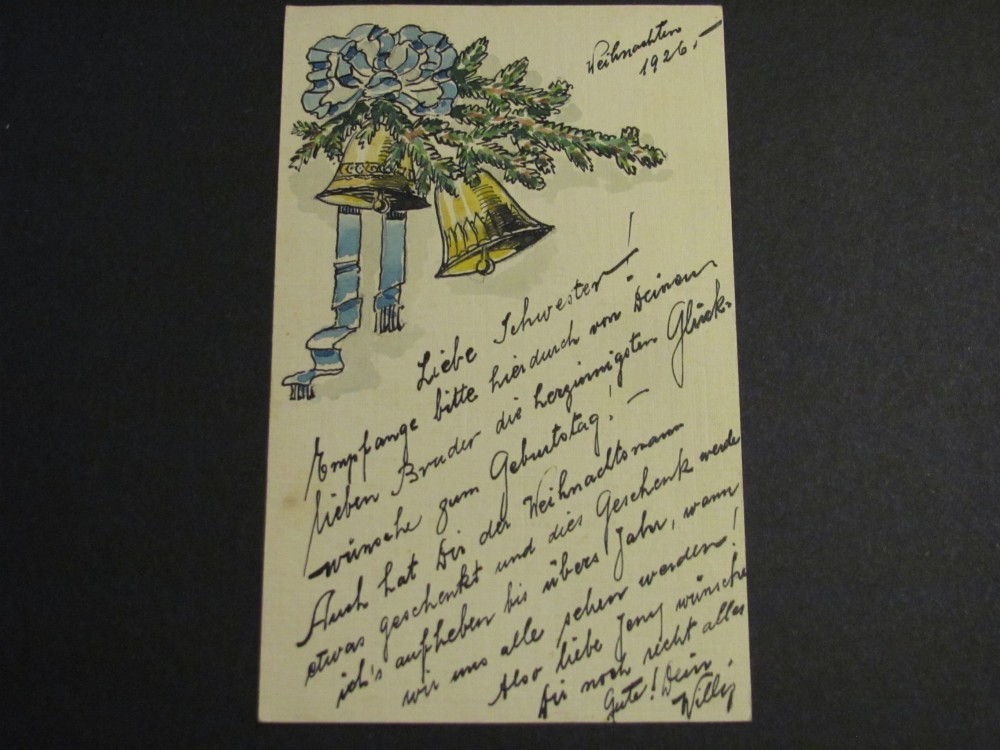 Weihnachten
1926.-
Liebe Schwester!
Empfange bitte hierdurch von Deinem
lieben Bruder die herzinnigsten Glück-
wünsche zum Geburtstag! -
Auch hat Dir der Weihnachtsmann
etwas geschenkt und dies Geschenk werde
ich's aufheben bis übers Jahr, wann
wir uns alle sehen werden!
Also liebe Jenny wünsche
Dir noch recht alles
Gute! Dein
Willy.